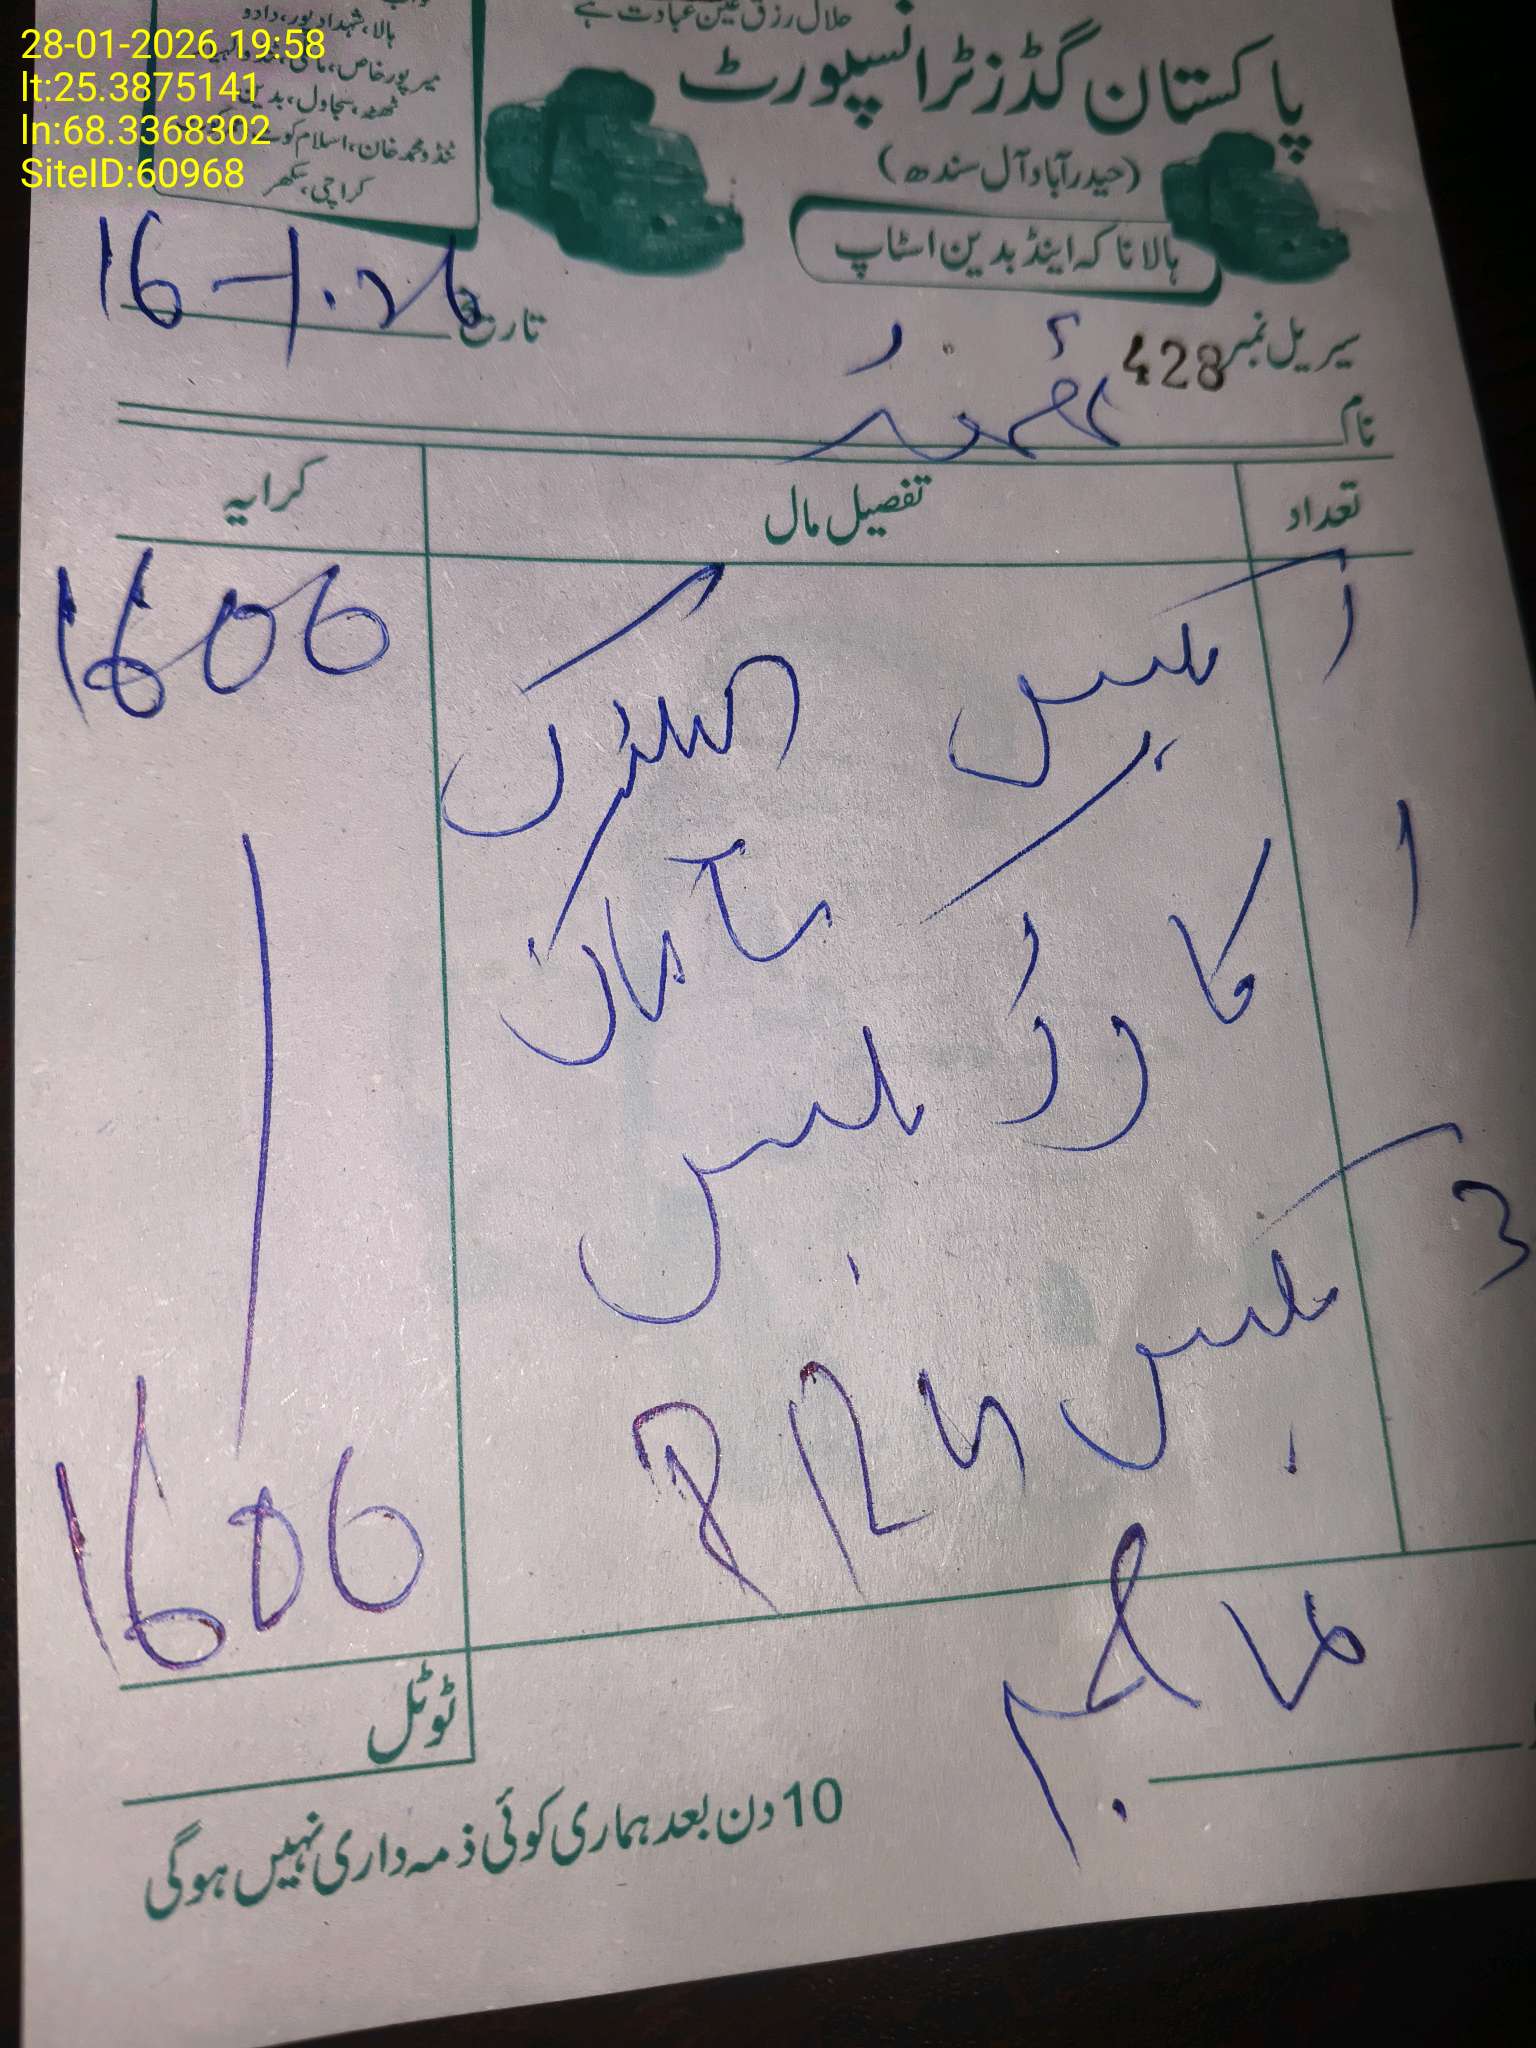 حلال رزق عین عبادت ہے
پاکستان گڈز ٹرانسپورٹ
(حیدرآباد آل سندھ)
ہالا ناکہ اینڈ بدین اسٹاپ
ہالا، شہدادپور، دادو
میرپورخاص،
ٹھٹھہ، سجاول، بدین
ٹنڈو محمد خان، اسلام کوٹ
کراچی، سکھر
28-01-2026 19:58
lt:25.3875141
ln:68.3368302
SiteID:60968
سیریل نمبر 428
تاریخ 16-1.26
نام
تعداد تفصیل مال کرایہ
1 بکس الیکٹرک سامان 1600
1 کارڈ بکس
3 بکس
1600
ٹوٹل
10 دن بعد ہماری کوئی ذمہ داری نہیں ہوگی